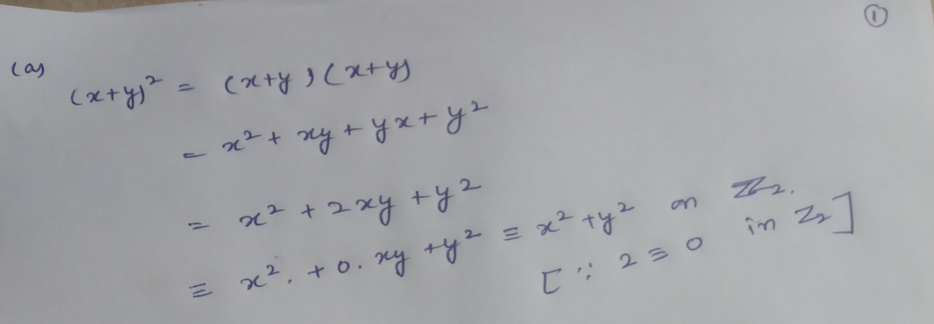 ①
(a)
(x+y)² = (x+y)(x+y)
= x² + xy + yx + y²
= x² + 2xy + y²
≡ x². + 0. xy + y² ≡ x² + y² on ℤ₂.
[∵ 2 ≡ 0 in Z₂]